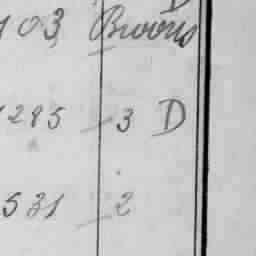 103 Brooks
1285 - 3 D
531 - 2